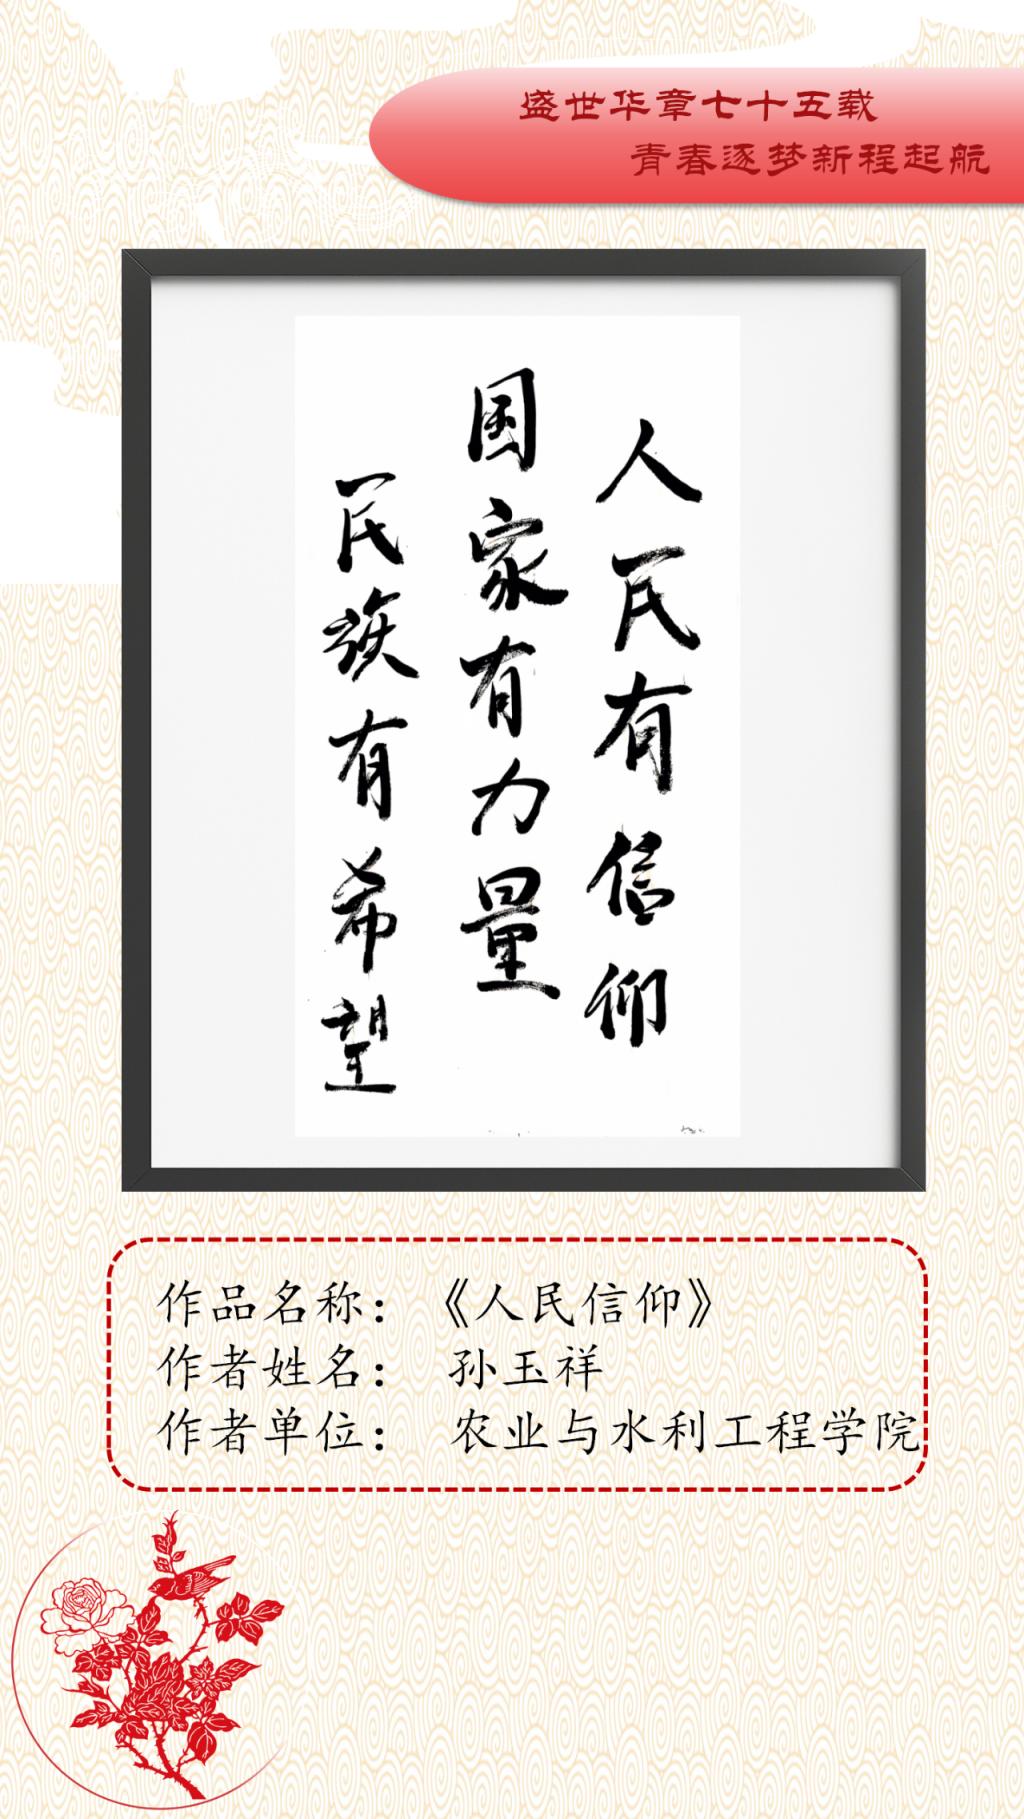 盛世华章七十五载
青春逐梦新程起航
人民有信仰
国家有力量
民族有希望
作品名称：《人民信仰》
作者姓名： 孙玉祥
作者单位： 农业与水利工程学院